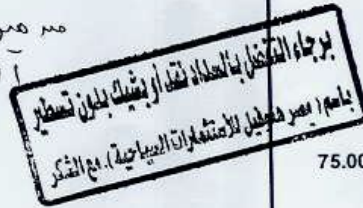 برجاء التفضل بالسداد نقدا أو بشيك بدون تسطير
باسم ( مصر للاستثمارات السياحية ). مع الشكر
75.00